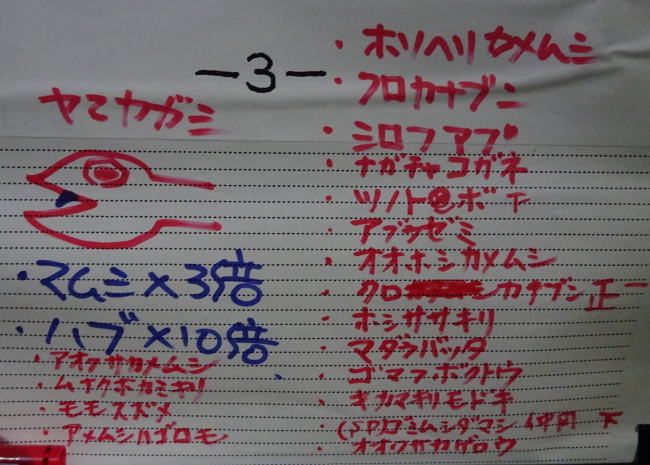 -3-
ヤマカガシ
・マムシ×3倍
・ハブ×10倍
・アオクサカメムシ
・ムナクボカミキリ
・モモスズメ
・アメムシハゴロモ
・ホソヘリカメムシ
・クロカナブン
・シロフアブ
・ナガチャコガネ
・ツノトンボ 下
・アブラゼミ
・オオホシカメムシ
・クロカナブン 正一
・ホシササキリ
・マダラバッタ
・ゴマフボクトウ
・キカマキリモドキ
・(SP)ゴミムシダマシ 下
・オオクサカゲロウ